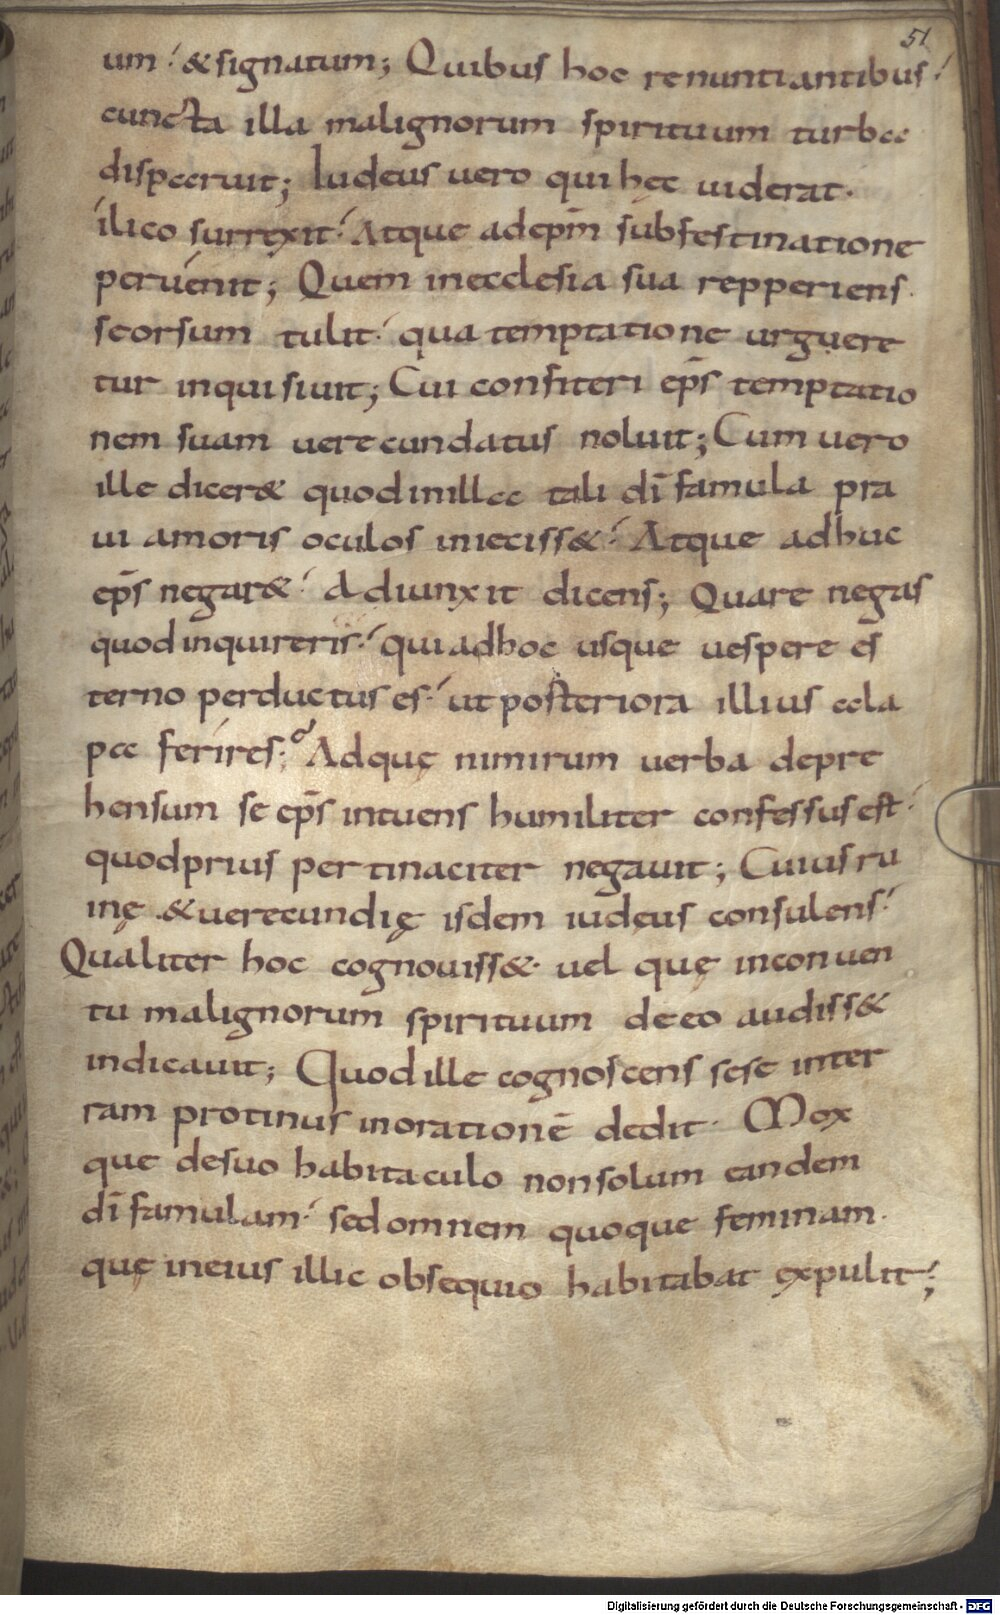 51
um. & signatum; Quibus hoc renuntiantibus.
cuncta illa malignorum spirituum turba
disparuit; Iudeus uero qui hęc uiderat.
ilico surrexit. Atque ad ep̄m sub festinatione
peruenit; Quem in ecclesia sua repperiens.
seorsum tulit. qua temptatione urguere
tur inquisiuit; Cui confiteri ep̄s temptatio
nem suam uerecundatus noluit; Cum uero
ille dicer& quod in illa tali dī famula pra
ui amoris oculos inieciss&. Atque adhuc
ep̄s negar&. Adiunxit dicens; Quare negas
quod inquireris. qui ad hoc usque uespere es
terno perductus es. ut posteriora illius ala
pa ferires. Ad quę nimirum uerba depre
hensum se ep̄s intuens humiliter confessus est.
quod prius pertinaciter negauit; Cuius ru
inę & uerecundię isdem iudęus consulens.
Qualiter hoc cognouiss&. uel quę in conuen
tu malignorum spirituum de eo audiss&
indicauit; Quod ille cognoscens sese in ter
ram protinus in orationē dedit. Mox
que de suo habitaculo non solum eandem
dī famulam. sed omnem quoque feminam.
quę in eius illic obsequio habitabat expulit;
Digitalisierung gefördert durch die Deutsche Forschungsgemeinschaft - DFG